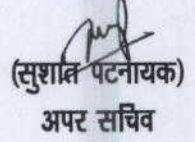 (सुशांत पटनायक)
अपर सचिव